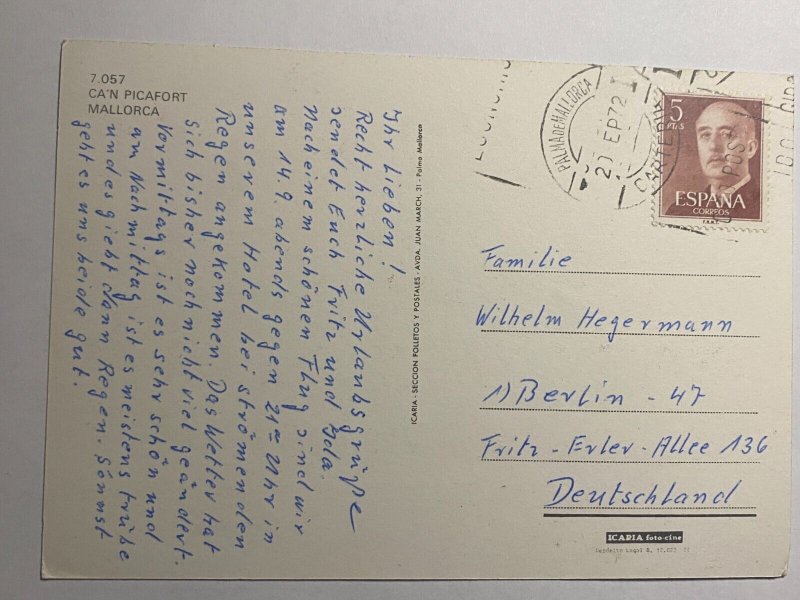 7.057
CA'N PICAFORT
MALLORCA
Ihr Lieben!
Recht herzliche Urlaubsgrüße
sendet Euch Fritz und Lola.
Nach einem schönen Flug sind wir
am 14.9. abends gegen 21ºº Uhr in
unserem Hotel bei strömenden
Regen angekommen. Das Wetter hat
sich bisher noch nicht viel geändert.
Vormittags ist es sehr schön und
am Nachmittag ist es meistens trübe
und es giebt dann Regen. Sonnst
geht es uns beide gut.
ICARIA - SECCION FOLLETOS Y POSTALES - AVDA. JUAN MARCH, 31 - Palma Mallorca
PALMA DE MALLORCA
CARTERIA
5
PTAS
ESPAÑA
CORREOS
F.N.M.T.
Familie
Wilhelm Hegermann
1) Berlin - 47
Fritz - Erler - Allee 136
Deutschland
ICARIA foto-cine
Depósito Legal B.